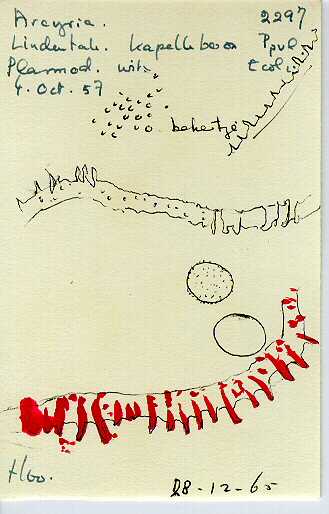 Arcyria. 2297
Lindentah. Kapelleboom Ppul
Plasmod. wit. E col.
4. Oct. 57
bekertje
Hoo.
28-12-65